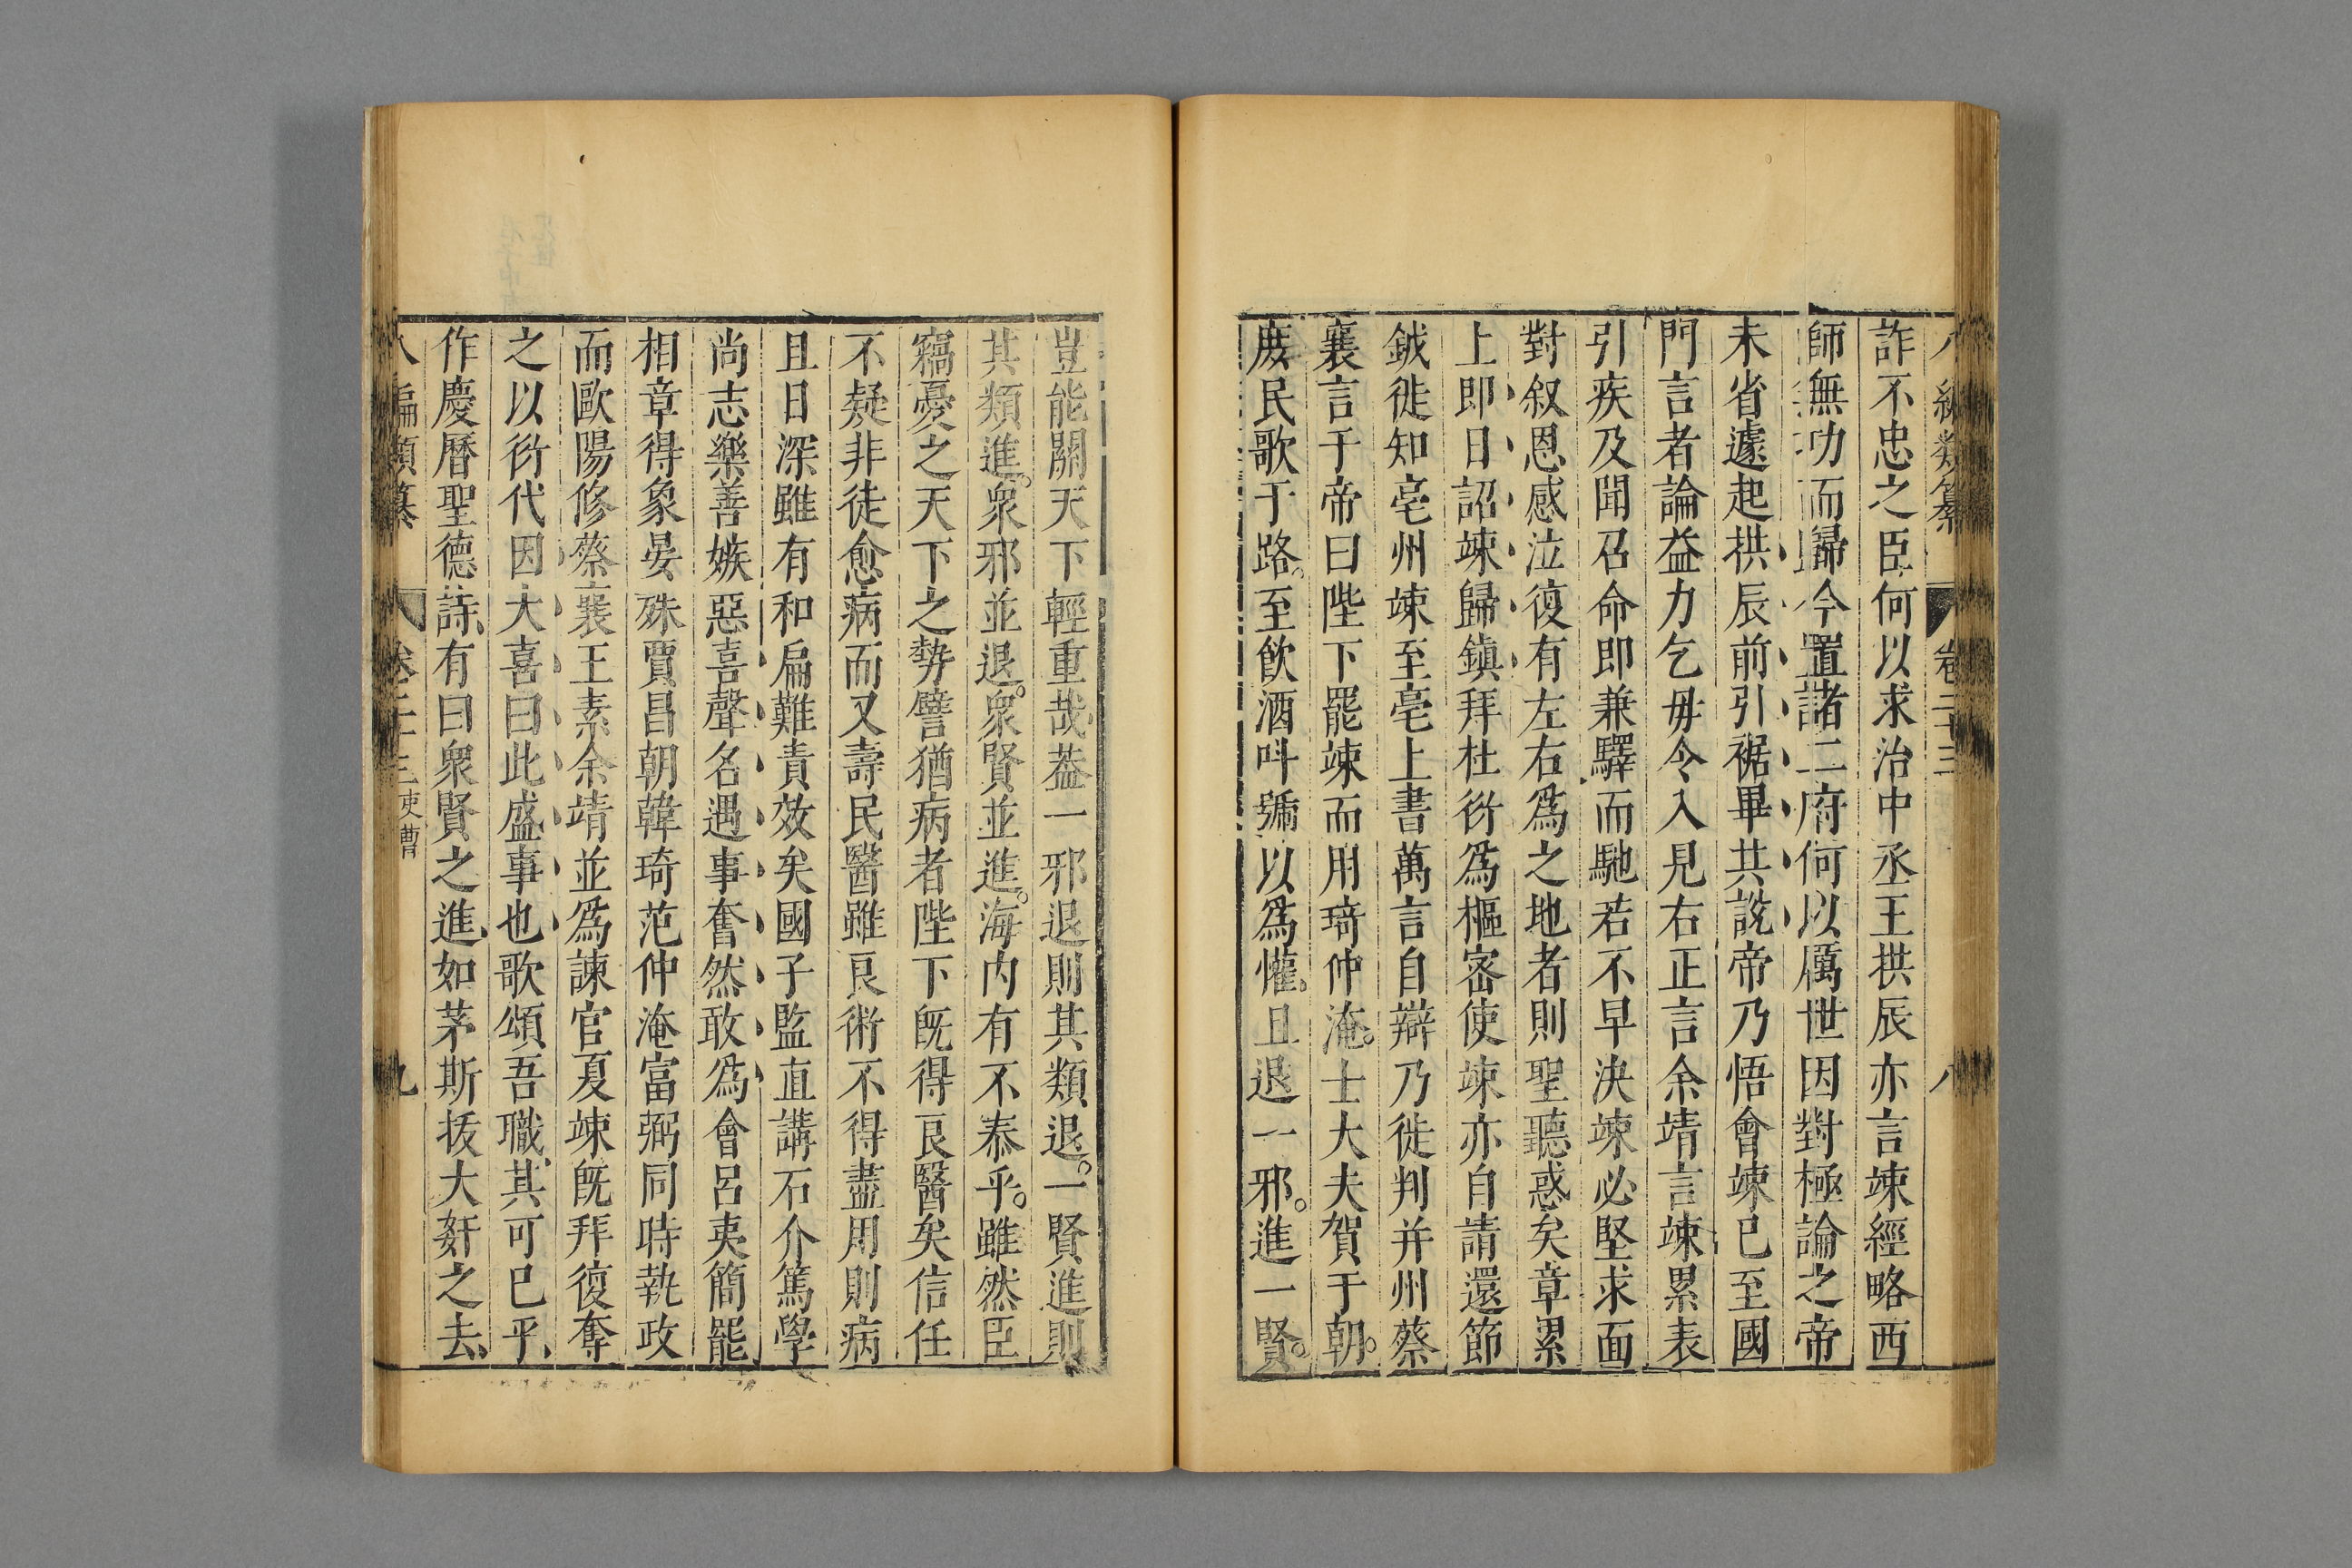 八編類纂 卷二十三 八
詐不忠之臣何以求治中丞王拱辰亦言竦經略西
師無功而歸今置諸二府何以厲世因對極論之帝
未省遽起拱辰前引裾畢其說帝乃悟會竦已至國
門言者論益力乞毋令入見右正言余靖言竦累表
引疾及聞召命即兼驛而馳若不早決竦必堅求面
對叙恩感泣復有左右爲之地者則聖聽惑矣章累
上即日詔竦歸鎮拜杜衍爲樞密使竦亦自請還節
鉞徙知亳州竦至亳上書萬言自辯乃徙判并州蔡
襄言于帝曰陛下罷竦而用琦仲淹。士大夫賀于朝。
庻民歌于路。至飲酒呌號以爲懽。且退一邪。進一賢。
豈能關天下輕重哉葢一邪退則其類退。一賢進則
其類進。衆邪並退。衆賢並進。海内有不泰乎。雖然臣
竊憂之天下之勢譬猶病者陛下旣得良醫矣信任
不疑非徒愈病而又壽民醫雖良術不得盡用則病
且日深雖有和扁難責效矣國子監直講石介篤學
尚志樂善嫉惡喜聲名遇事奮然敢爲會呂夷簡罷
相章得象晏殊賈昌朝韓琦范仲淹富弼同時執政
而歐陽修蔡襄王素余靖並爲諫官夏竦旣拜復奪
之以衍代因大喜曰此盛事也歌頌吾職其可已乎、
作慶曆聖德詩、有曰衆賢之進、如茅斯拔大奸之去、
八編類纂 卷二十三 吏曹 九